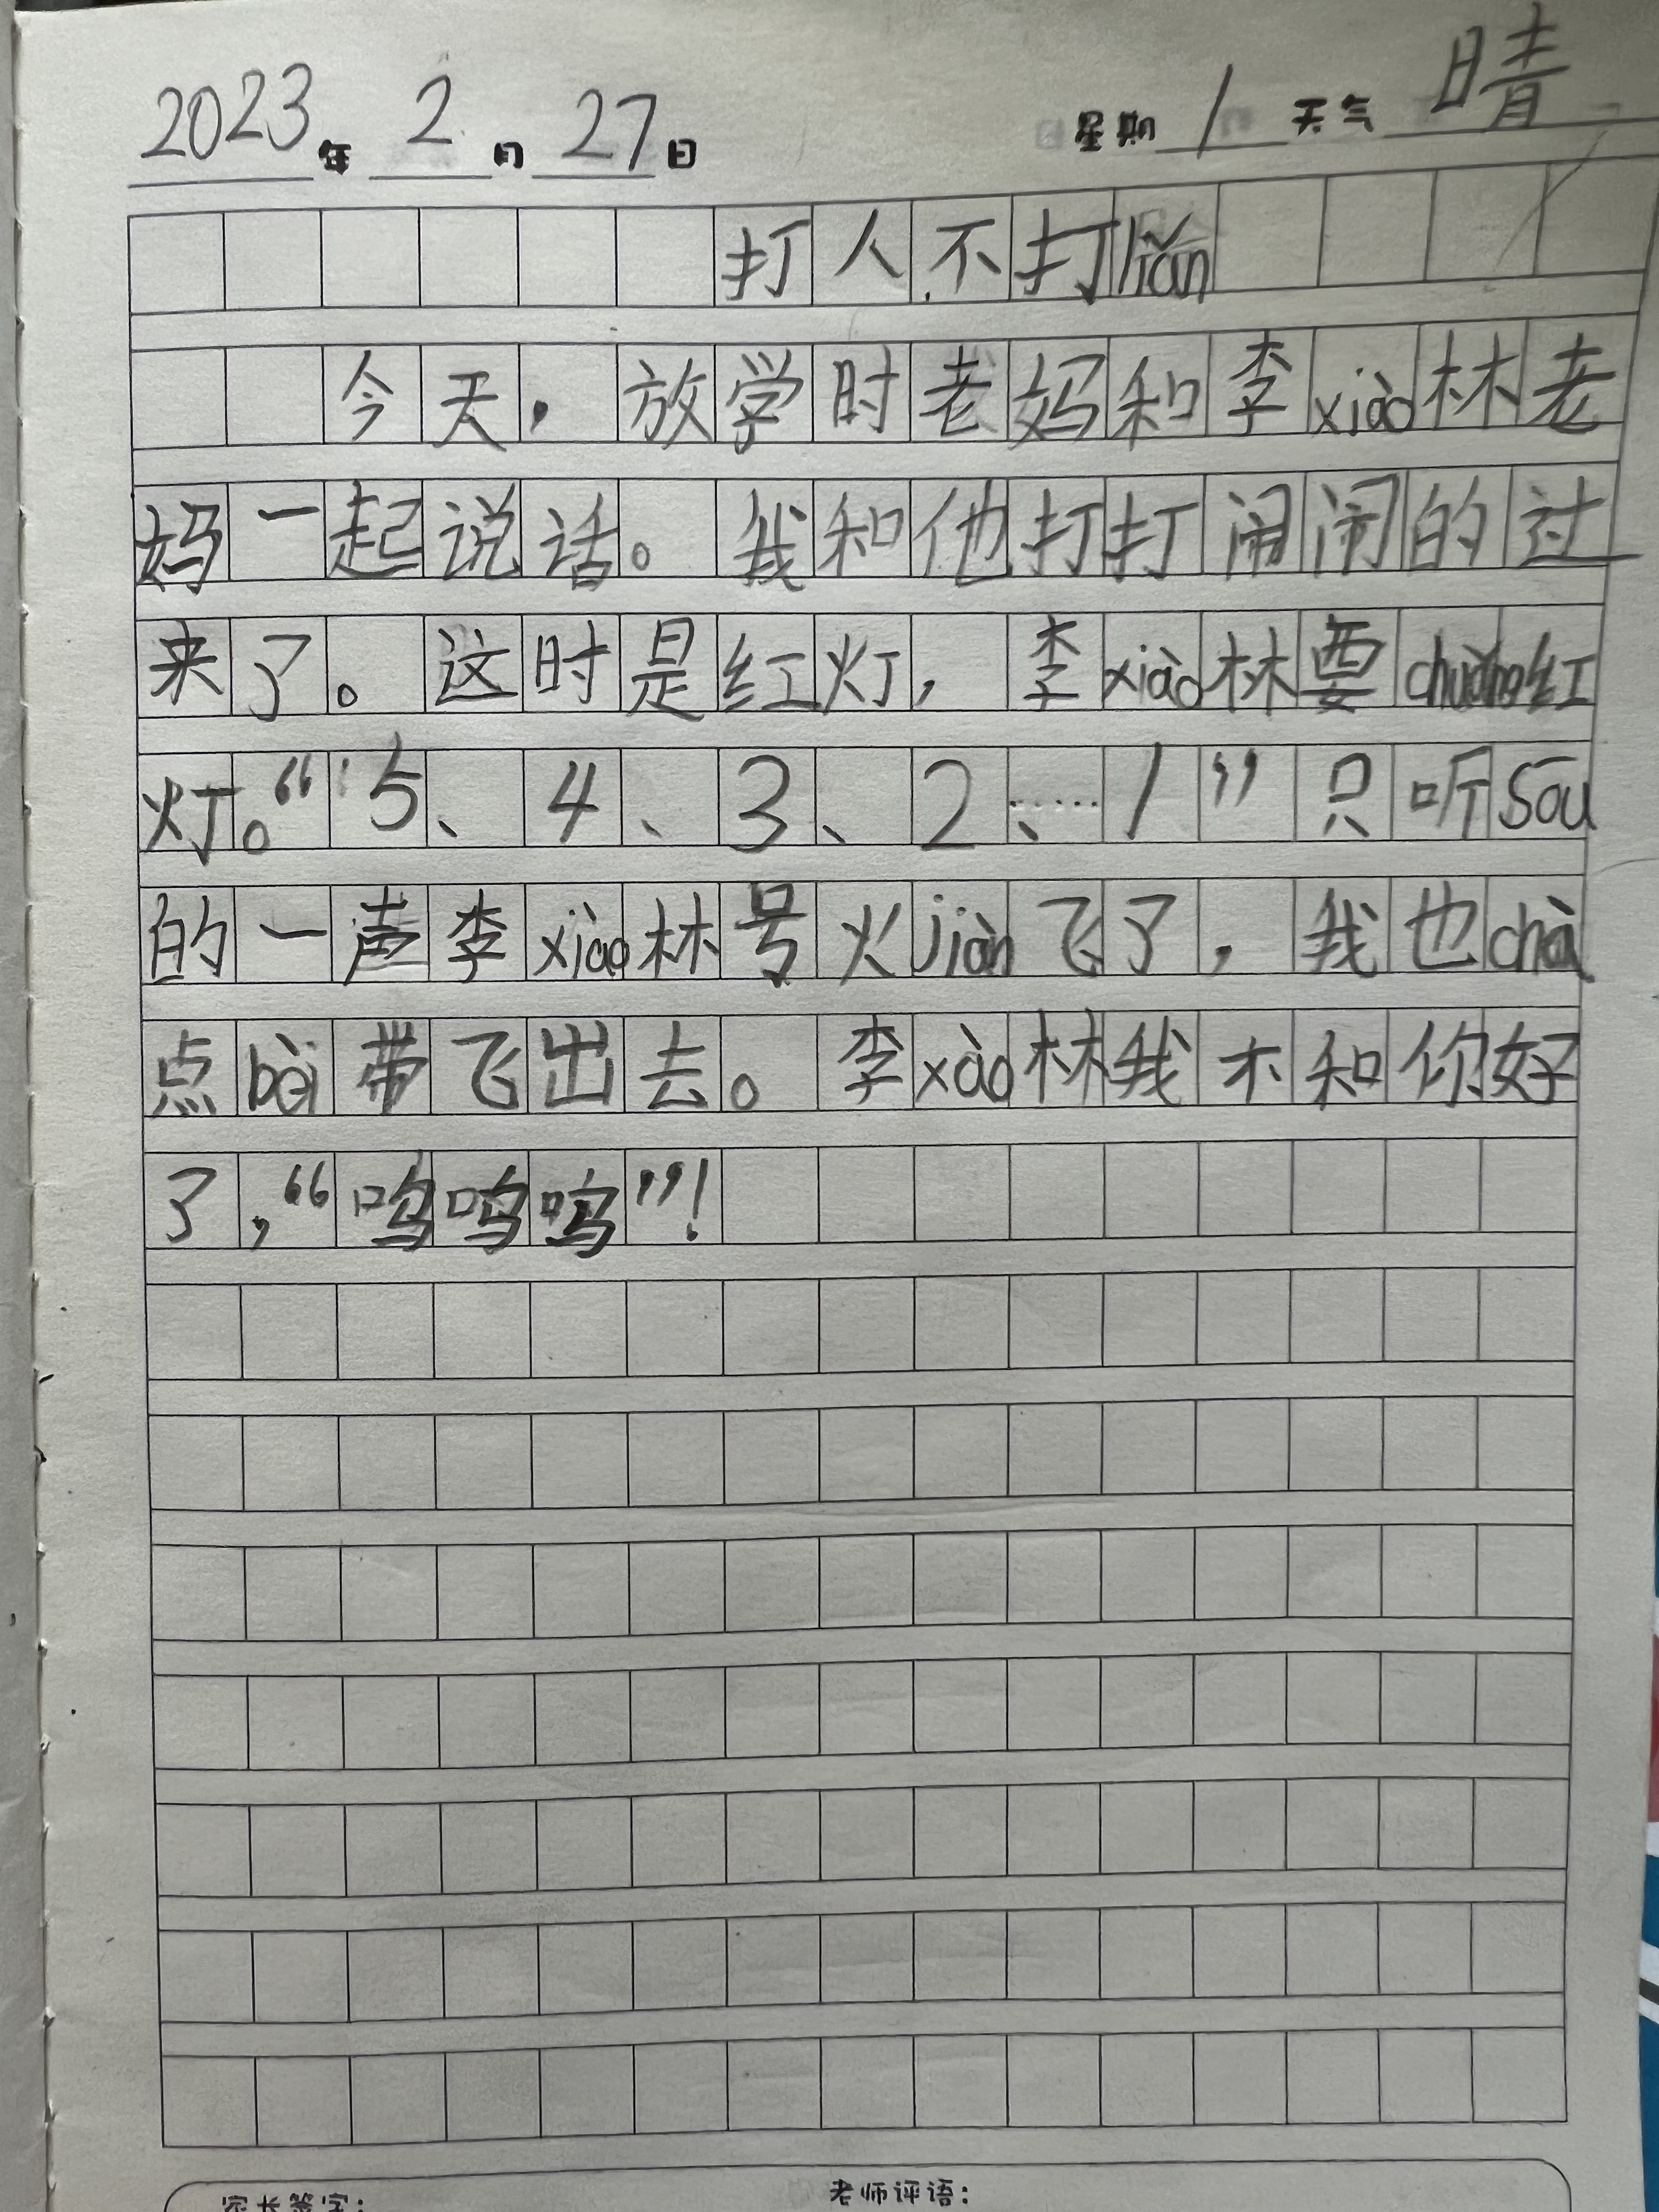 2023年 2月 27日 星期 1 天气 晴
打人不打liǎn
今天，放学时老妈和李xiào林老
妈一起说话。我和他打打闹闹的过
来了。这时是红灯，李xiào林要chuǎng红
灯。“5、4、3、2、……1”只听Sōu
的一声李xiào林号火jiàn飞了，我也chà
点bèi带飞出去。李xào林我不和你好
了，“呜呜呜”！
家长签字： 老师评语：